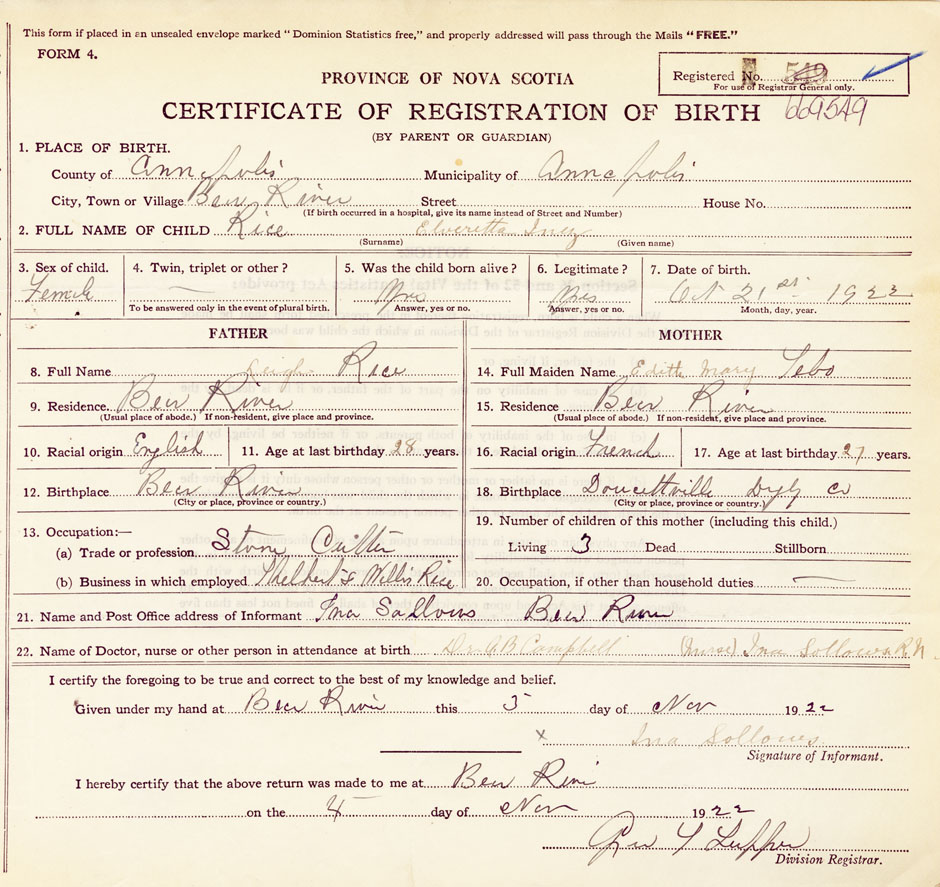 This form if placed in an unsealed envelope marked "Dominion Statistics free," and properly addressed will pass through the Mails "FREE."
FORM 4.
PROVINCE OF NOVA SCOTIA
Registered No. 549
For use of Registrar General only.
CERTIFICATE OF REGISTRATION OF BIRTH 669549
(BY PARENT OR GUARDIAN)
1. PLACE OF BIRTH.
County of Annapolis Municipality of Annapolis
City, Town or Village Bear River Street House No.
(If birth occurred in a hospital, give its name instead of Street and Number)
2. FULL NAME OF CHILD Rice Elveretta Inez
(Surname) (Given name)
3. Sex of child. 4. Twin, triplet or other? 5. Was the child born alive? 6. Legitimate? 7. Date of birth.
Female — Yes Yes Oct 21st 1922
To be answered only in the event of plural birth. Answer, yes or no. Answer, yes or no. Month, day, year.
FATHER MOTHER
8. Full Name Leigh Rice 14. Full Maiden Name Edith Mary Sebo
9. Residence. Bear River 15. Residence Bear River
(Usual place of abode.) If non-resident, give place and province. (Usual place of abode.) If non-resident, give place and province.
10. Racial origin English 11. Age at last birthday 28 years. 16. Racial origin French 17. Age at last birthday 27 years.
12. Birthplace Bear River 18. Birthplace Doucettville Dgby Co
(City or place, province or country.) (City or place, province or country.)
13. Occupation:— 19. Number of children of this mother (including this child.)
(a) Trade or profession Stone Cutter Living 3 Dead Stillborn
(b) Business in which employed Willis Rice 20. Occupation, if other than household duties —
21. Name and Post Office address of Informant Ina Sollows Bear River
22. Name of Doctor, nurse or other person in attendance at birth Dr. A B Campbell (Nurse) Ina Sollows R.N
I certify the foregoing to be true and correct to the best of my knowledge and belief.
Given under my hand at Bear River this 3 day of Nov 1922
x Ina Sollows
Signature of Informant.
I hereby certify that the above return was made to me at Bear River
on the 4 day of Nov 1922
Division Registrar.